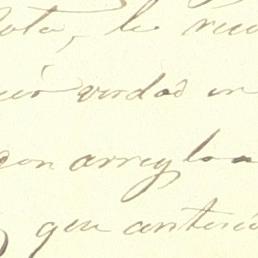 ota, le reci
ció verdad en
con arreglo a
que anterio